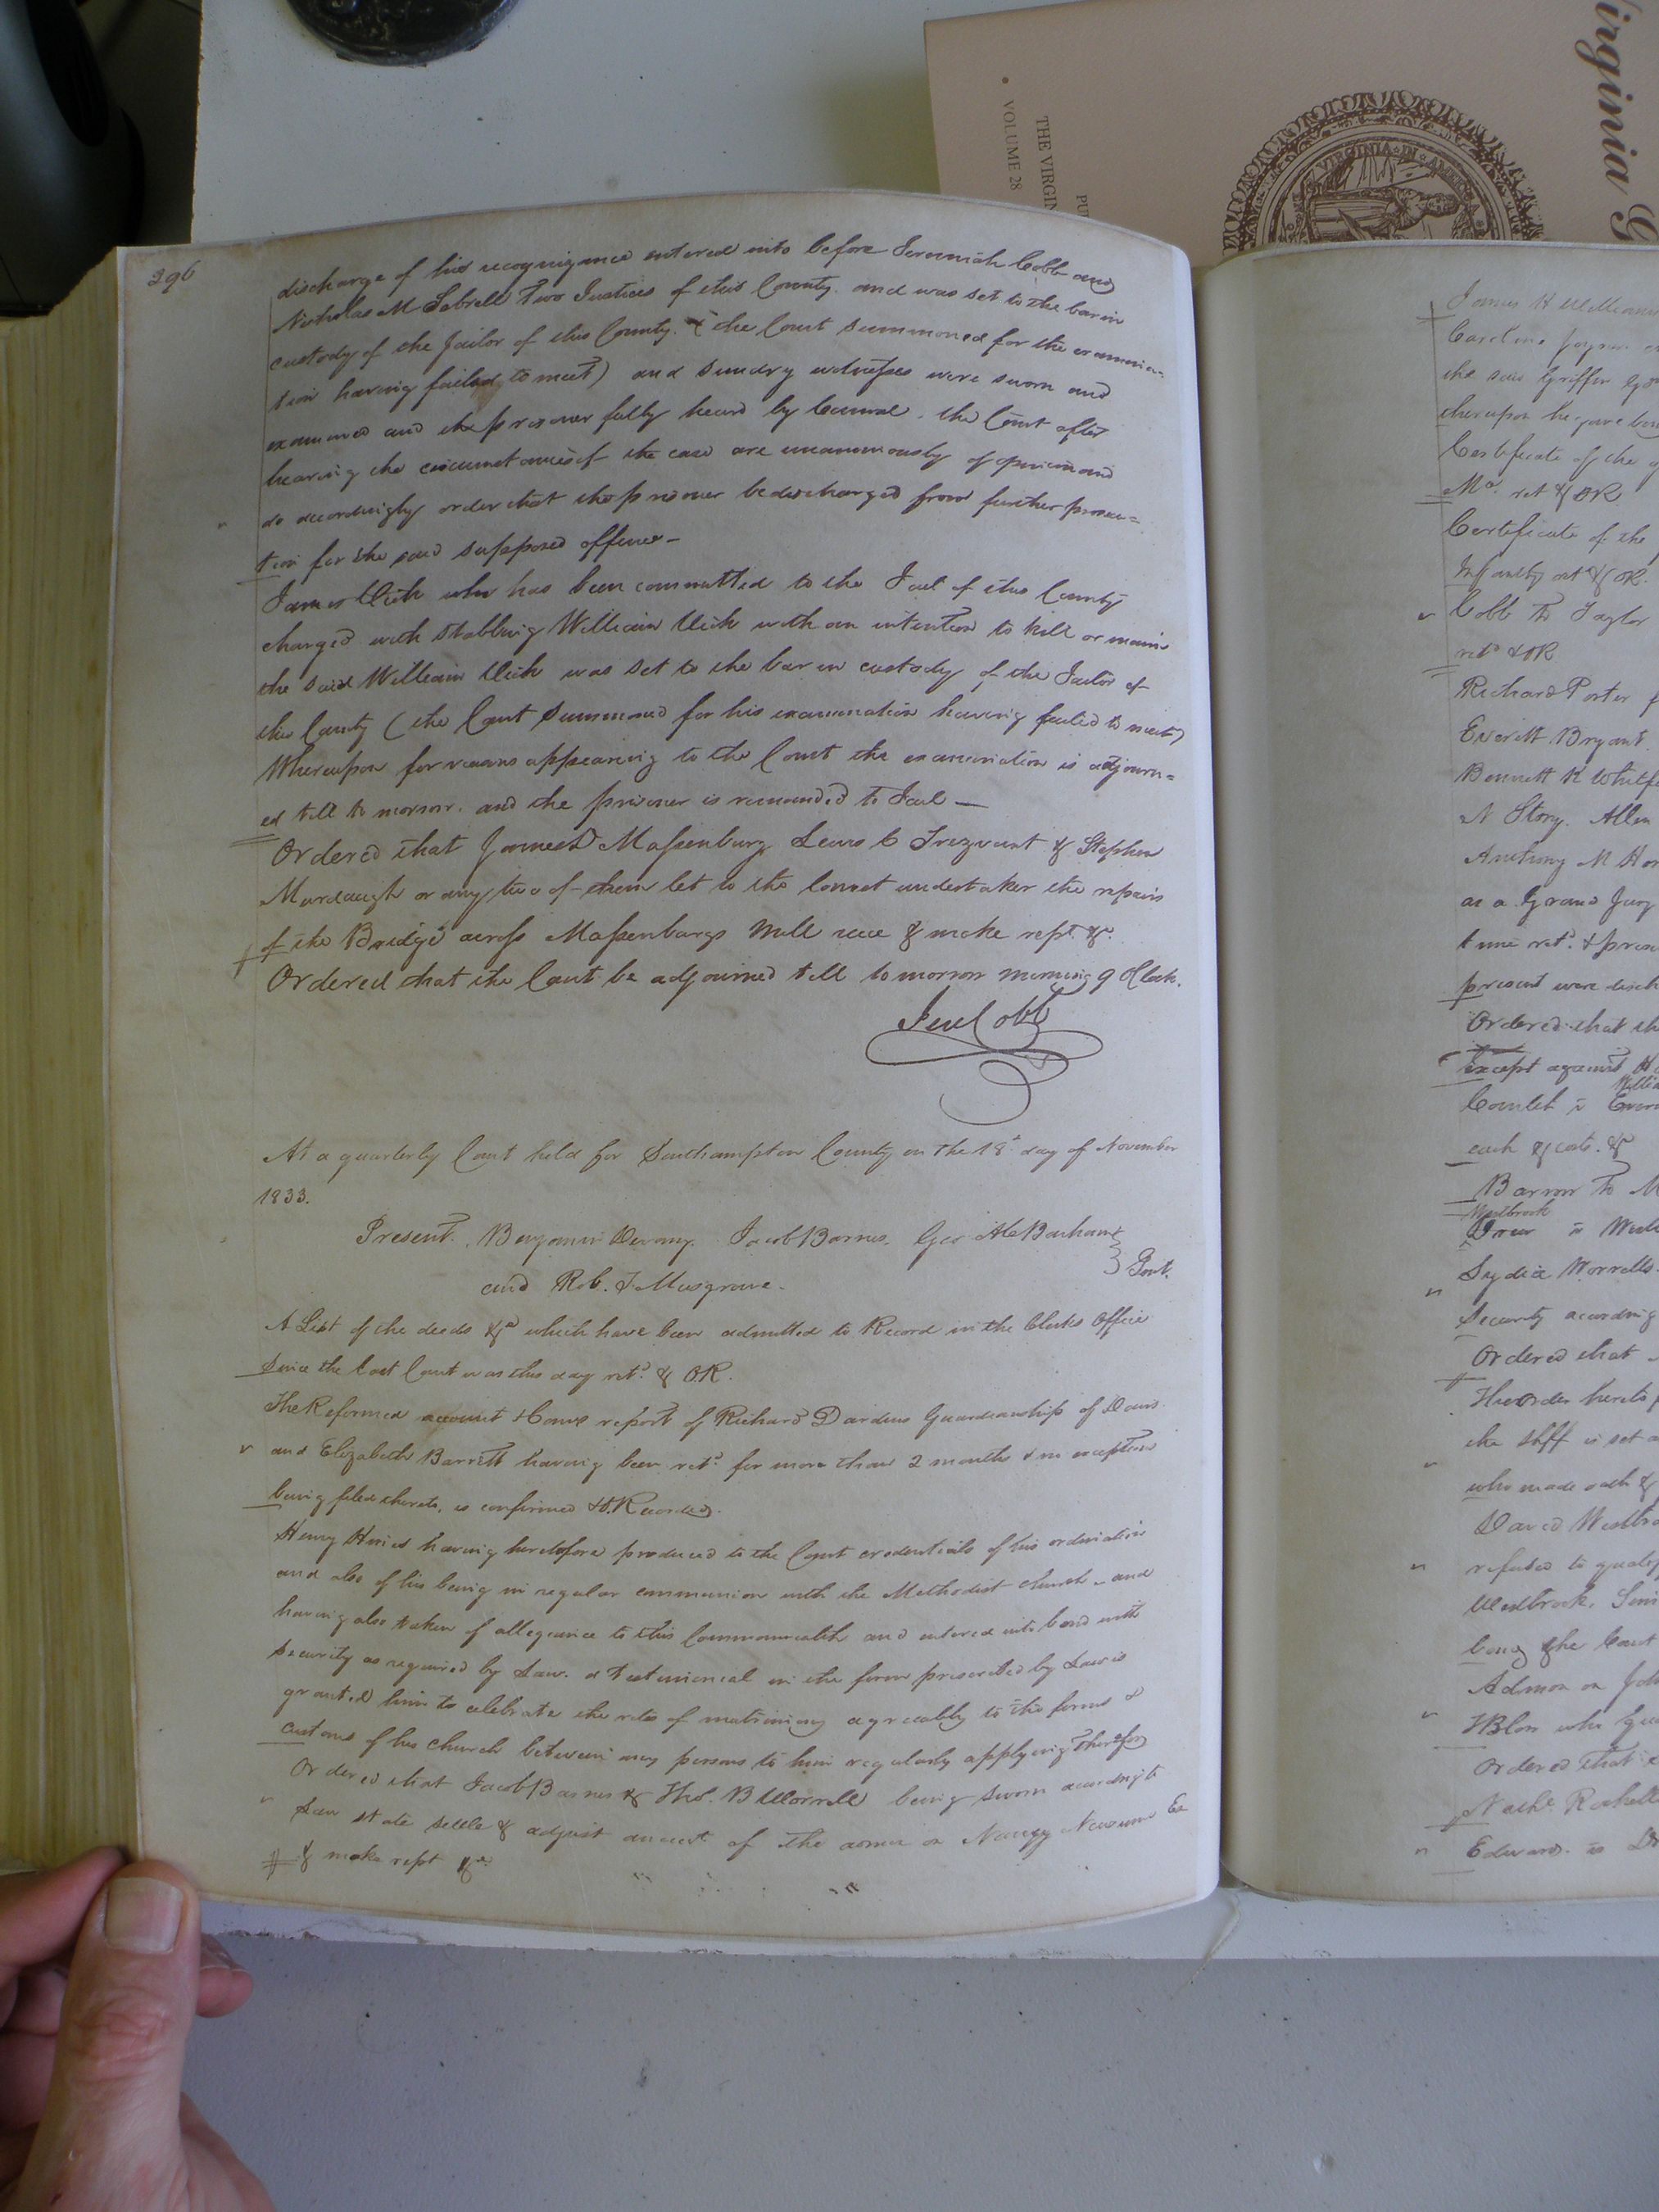 296
discharge of his recognizance entered into before Jeremiah Cobb and
Nicholas M Sebrell Two Justices of this County. and was set to the bar in
custody of the Jailor of this County. (the Court summoned for the examina=
tion having failed to meet) and sundry witnesses were sworn and
examined and the prisoner fully heard by Counsel. the Court after
hearing the circumstances of the case are unanimously of opinion and
do accordingly order that the prisoner be discharged from further prosecu=
tion for the said supposed offence—
James who has been committed to the Jail of this County
charged with stabbing William with an intention to kill or maim
the said William was set to the bar in custody of the Jailor of
this County (the Court Summoned for his examination having failed to meet)
Whereupon for reasons appearing to the Court the examination is adjourn=
ed till to morrow. and the prisoner is remanded to Jail —
Ordered that Massenburg Lewis C Trezvant & Stephen
Murdaugh or any two of them let to the lowest undertaker the repairs
of the Bridge across Massenburgs Mill & make rept. &c.
Ordered that the Court be adjourned till tomorrow morning 9 OClock.
Jere Cobb
At a quarterly Court held for Southampton County on the 18th day of November
1833.
Present. Benjamin Devany. Jacob Barnes. Geo Barham
and Rob. T Musgrave. } Gent.
A List of the deeds &c which have been admitted to Record in the Clerks Office
Since the last Court was this day retd. & OR.
The Reformed account & Coms report of Richard Dardens Guardianship of
and Elizabeth Barrett having been retd. for more than 2 months & no exception
being filed thereto, is confirmed & O. Recorded.
Henry having heretofore produced to the Court credentials of his ordination
and also of his being in regular communion with the Methodist church. and
having also taken of allegiance to this Commonwealth and entered into bond with
Security as required by Law. a Testimonial in the form prescribed by Law is
granted him to celebrate the rites of matrimony agreeably to the forms &
customs of his church between any persons to him regularly applying therefor
Ordered that Jacob Barnes & Tho. B Worrell being sworn according to
Law state settle & adjust account of the admor on Newsum
& make rept &c.
VOLUME 28
THE VIRGIN
PU
VIRGINIA IN
Virginia G
James H Williams
the said Griffin
thereupon he gave
Certificate of the
retd & OR
Certificate of the
OR.
Cobb To Taylor
retd & OR
Richard Porter
Everitt Bryant
Bennett K
N Story. Allen
Anthony M
as a Grand Jury
time retd. &
present were disch
Ordered that th
Except against
each & costs. &c
Barrow To M
Westbrook
Drew
Lydia Worrells
Security according
Ordered that
the Shff is set a
who made oath &
David Westbro
refused to qualif
Westbrook.
being the Court
Admon on
who
Ordered that
Edwards